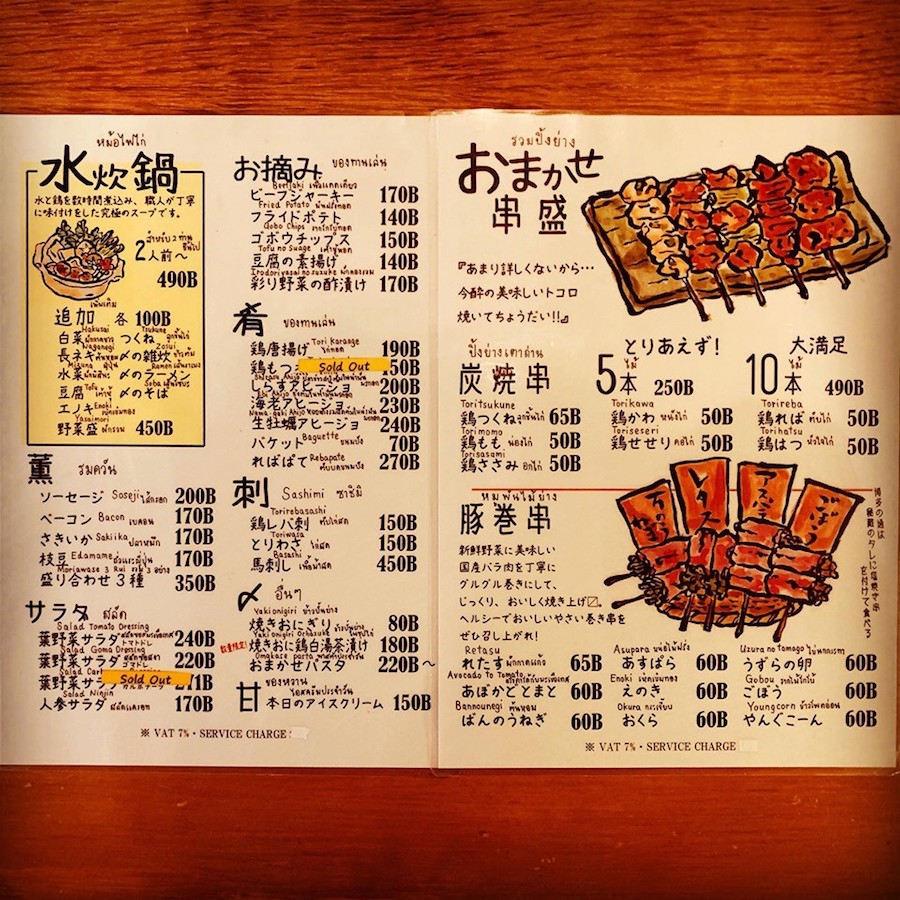 หม้อไฟไก่
水炊鍋
水と鶏を数時間煮込み、職人が丁寧
に味付けをした究極のスープです。
สำหรับ 2 ท่าน
ขึ้นไป
2人前〜
490B
เพิ่มเติม
追加 各 100B
Hakusai Tsukune
白菜 ผักกาดขาว つくね ลูกชิ้นไก่
Naganegi Zosui
長ネギ 〆の雑炊 ข้าวต้ม
Mizuna Ramen
水菜 〆のラーメン
Tofu Soba
豆腐 เต้าหู้ 〆のそば
Enoki
エノキ เห็ดเข็มทอง
Yasaimori
野菜盛 ผักรวม 450B
薫 รมควัน
ソーセージ Soseji ไส้กรอก 200B
ベーコン Bacon เบคอน 170B
さきいか Sakiika ปลาหมึก 170B
枝豆 Edamame ถั่วแระญี่ปุ่น 170B
Moriawase 3 Rui รวม 3 อย่าง
盛り合わせ3種 350B
サラダ สลัด
Salad Tomato Dressing
葉野菜サラダ トマトドレ 240B
Salad Goma Dressing
葉野菜サラダ ゴマドレ 220B
葉野菜サラ Sold Out
Salad Ninjin
人参サラダ สลัดแครอท 170B
お摘み ของทานเล่น
Beefjaki เนื้อแดดเดียว
ビーフジャーキー 170B
Fried Potato มันฝรั่งทอด
フライドポテト 140B
Gobo Chips
ゴボウチップス 150B
Tofu no Suage เต้าหู้ทอด
豆腐の素揚げ 140B
Irodoriyasai no suzuke ผักดองรวม
彩り野菜の酢漬け 170B
肴 ของทานเล่น
Tori Karaage
鶏唐揚げ ไก่ทอด 190B
鶏もつ Sold Out 150B
しらすアヒージョ 200B
海老アヒージョ 230B
生牡蠣アヒージョ 240B
Baguette
バケット ขนมปัง 70B
Rebapate
ればぱて ตับบดขนมปัง 270B
刺 Sashimi ซาชิมิ
Torirebasashi
鶏レバ刺 ตับไก่สด 150B
Toriwasa
とりわさ ไก่สด 150B
Basashi
馬刺し เนื้อม้าสด 450B
〆 อื่นๆ
Yaki onigiri ข้าวปั้นย่าง
焼きおにぎり 80B
数量限定!
焼きおに鶏白湯茶漬け 180B
Omakase pasta
おまかせパスタ 220B〜
甘 ของหวาน
ไอศครีมประจำวัน
本日のアイスクリーム 150B
※ VAT 7%・SERVICE CHARGE
รวมปิ้งย่าง
おまかせ
串盛
『あまり詳しくないから…
今酔の美味しいトコロ
焼いてちょうだい!!』
とりあえず!
5 ไม้ 本 250B
大満足
10 ไม้ 本 490B
ปิ้งย่างเตาถ่าน
炭焼串
Toritsukune
鶏つくね ลูกชิ้นไก่ 65B
Torimomo
鶏もも น่องไก่ 50B
Torisasami
鶏ささみ อกไก่ 50B
Torikawa
鶏かわ หนังไก่ 50B
Toriseseri
鶏せせり คอไก่ 50B
Torireba
鶏れば ตับไก่ 50B
Torihatsu
鶏はつ หัวใจไก่ 50B
หมูพันไม้ย่าง
豚巻串
新鮮野菜に美味しい
国産バラ肉を丁寧に
グルグル巻きにして、
じっくり、おいしく焼き上げ〼。
ヘルシーでおいしいやさい巻き串を
ぜひ召し上がれ!
レタス
アスパラ
ごぼう
博多の魂は
秘蔵のタレに塩焼き串
を付けて食べろ
Retasu
れたす ผักกาดแก้ว 65B
Avocado to Tomato
あぼかどとまと 60B
Bannounegi ต้นหอม
ばんのうねぎ 60B
Asupara หน่อไม้ฝรั่ง
あすぱら 60B
Enoki เห็ดเข็มทอง
えのき 60B
Okura กระเจี๊ยบ
おくら 60B
Uzura no tamago ไข่นกกระทา
うずらの卵 60B
Gobou รากไม้โกโบ
ごぼう 60B
Youngcorn ข้าวโพดอ่อน
やんぐこーん 60B
※ VAT 7%・SERVICE CHARGE